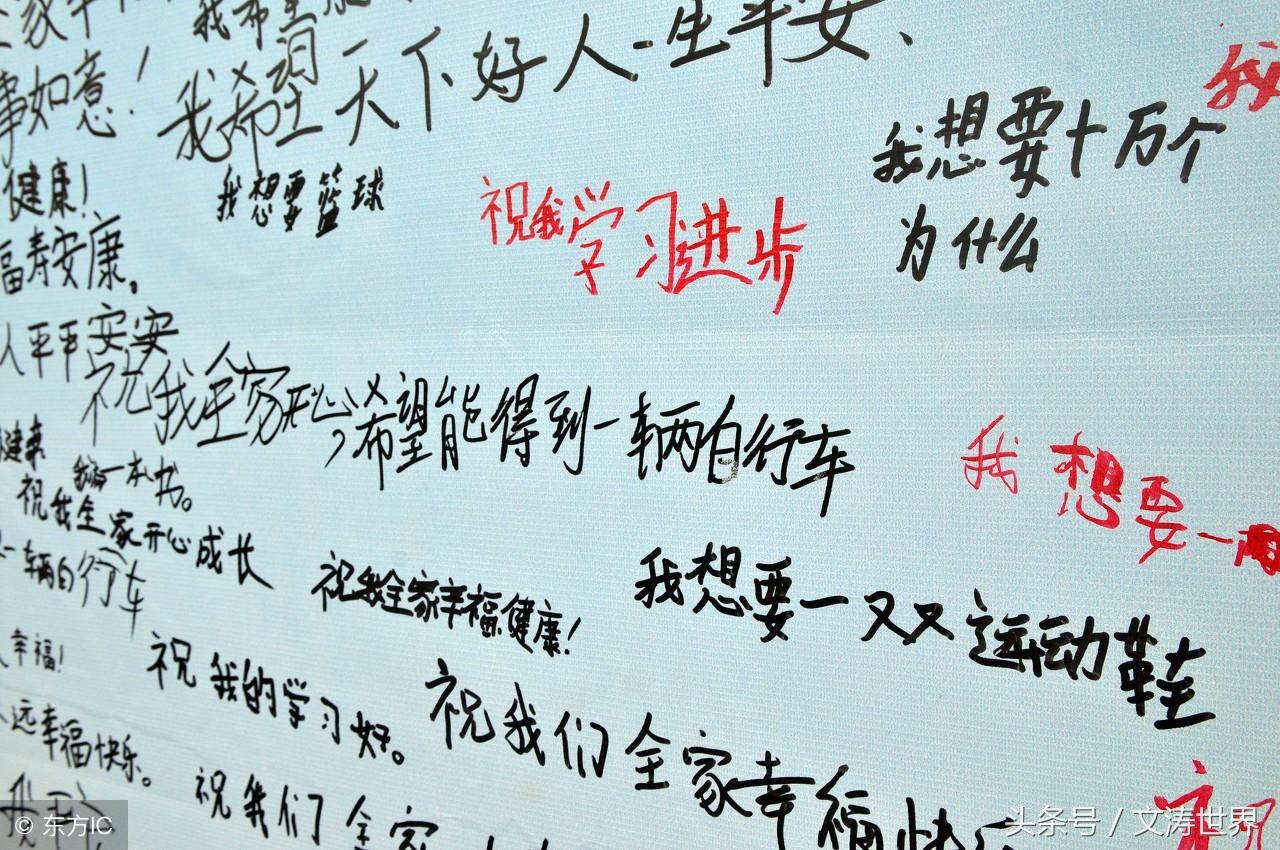 我希望
事如意！
我希望天下好人一生平安、
我
健康！
我想要篮球
祝我学习进步
我想要十万个
为什么
福寿安康，
人平平安安
祝我全家开心，希望能得到一辆自行车
我想要一
健康
一本书。
祝我全家开心成长
一辆自行车
祝我全家幸福健康！
我想要一双运动鞋
幸福！
祝我的学习好。
祝我们全家幸福快乐
远幸福快乐。
祝我们全家
祝
© 东方IC
头条号 / 文涛世界